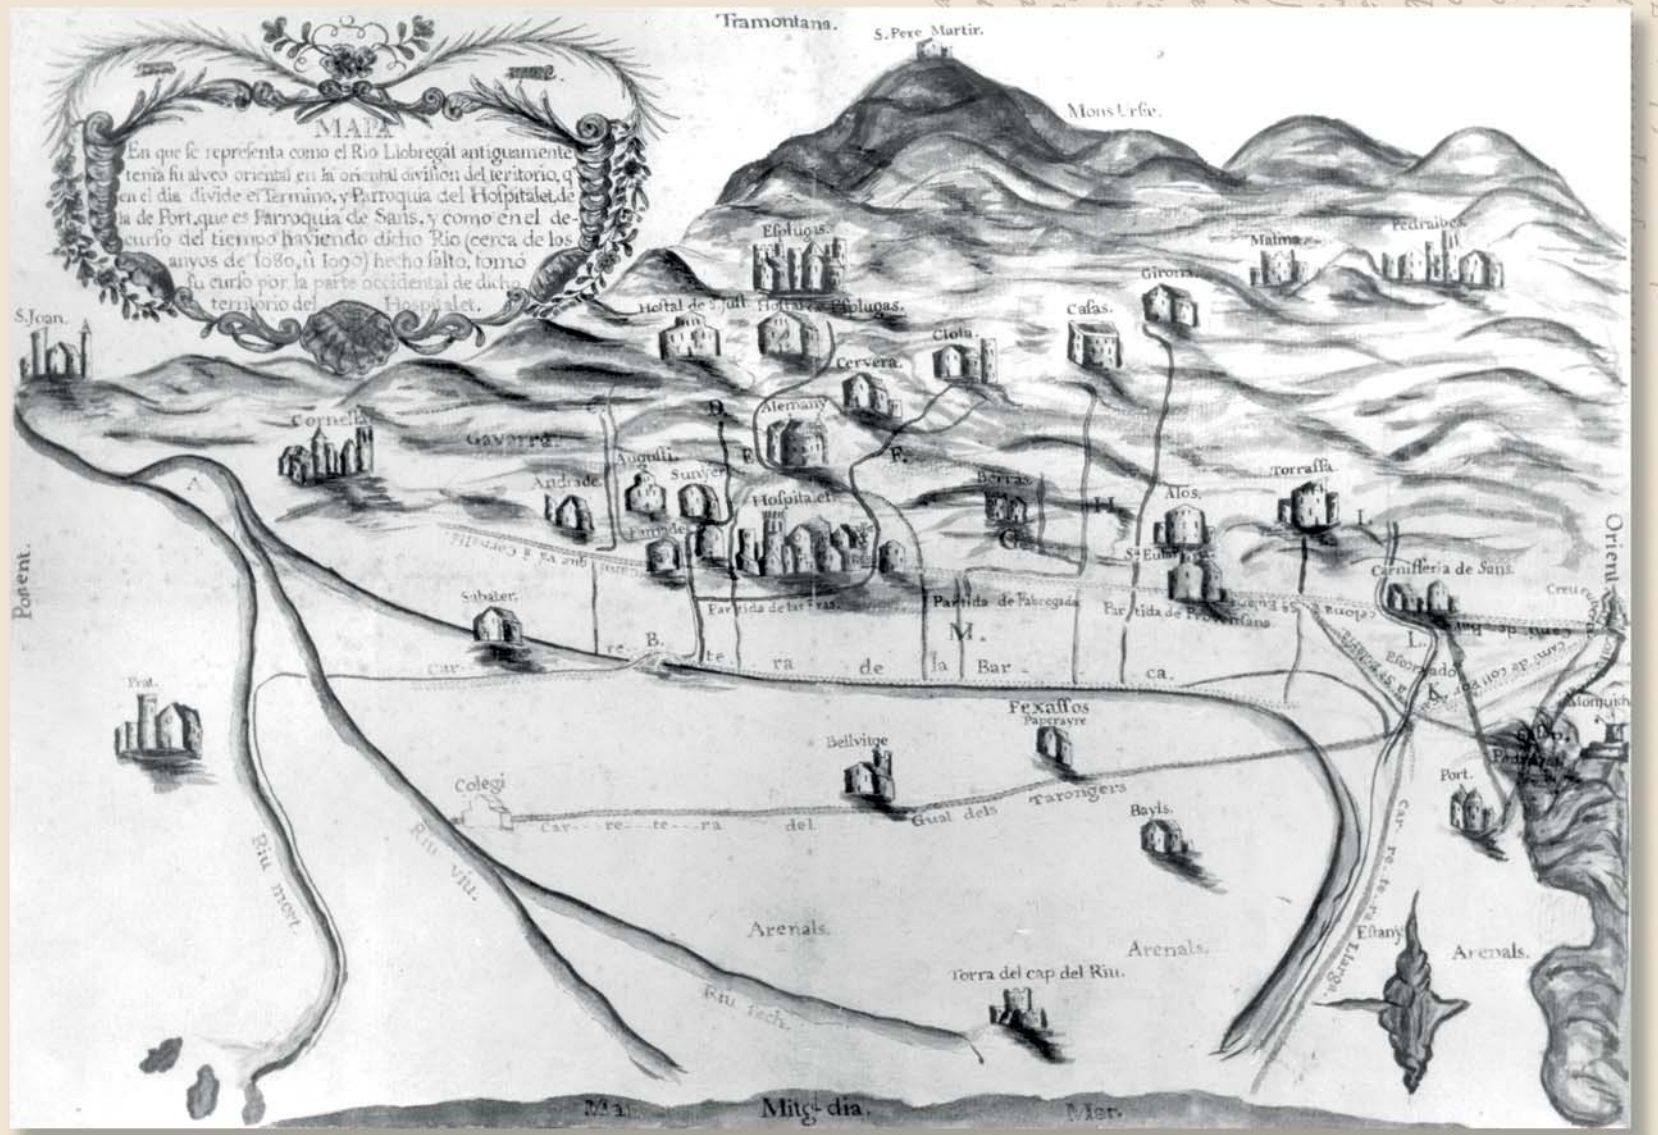 Tramontana.
S. Pere Martir.
Mons Urse.
MAPA
En que se representa como el Rio Llobregát antiguamente
tenia su alveo oriental en la oriental division del teritorio, q
en el dia divide el Termino, y Parroquia del Hospitalet de
la de Port, que es Parroquia de Sans, y como en el de-
curso del tiempo haviendo dicho Rio (cerca de los
anyos de 1080, ù 1090) hecho salto, tomó
su curso por la parte occidental de dicho
territorio del Hospitalet.
S. Joan.
Esplugas.
Malma
Pedralbes
Girona
Hostal de S. Just
Hostal de Esplugas.
Clota.
Casas.
Cervera.
Cornella
Gavarra
C.
D.
Alemany
A
Augusti.
Sunyer
E
F.
Andrade
Hospitalet
Berras
H
Alos.
Torrassa
I.
G
Cami que va à Cornellá
Sta Eularia
Carnisseria de Sans.
Ponent.
Orient
Creu
Sabater.
Partida de las Eras.
Partida de Fabregada
Partida de Provensana
M.
L.
B.
Car re te ra de la Bar ca.
K.
Prat.
Fexassos
Paperayre
Monjuich
Bellvitge
Port.
Colegi
Car re te ra del Gual dels Tarongers
Bayls.
Riu mort.
Riu viu.
car re te ra Llarga.
Arenals.
Arenals.
Estany
Arenals.
Torra del cap del Riu.
Riu sech.
Mar
Mitg-dia.
Mar.